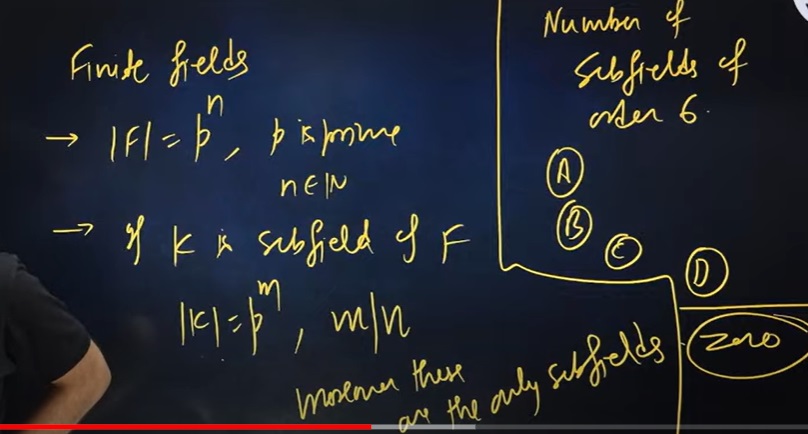 Finite fields
→ |F| = pⁿ, p is prime
n ∈ ℕ
→ If K is subfield of F
|K| = pᵐ, m|n
Moreover these
are the only subfields
Number of
Subfields of
order 6.
A
B
C
D
Zero